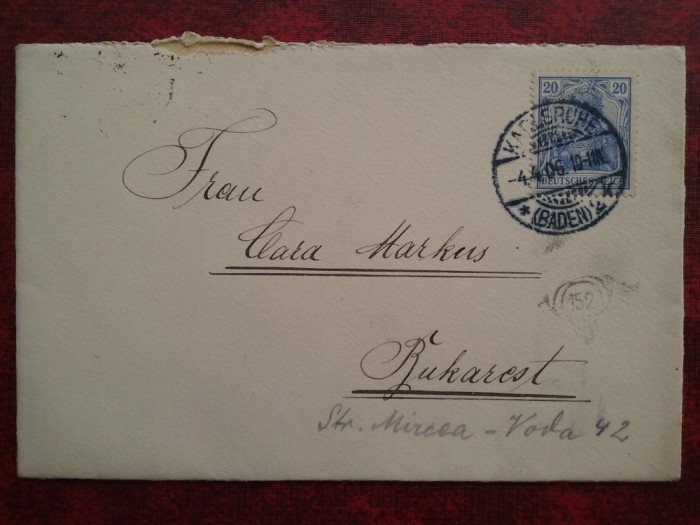 20 20
KARLSRUHE
-4.4.06. 10-11N.
DEUTSCHES REICH
(BADEN)
Frau
Clara Markus
152
Bukarest
Str. Mircea - Voda 42